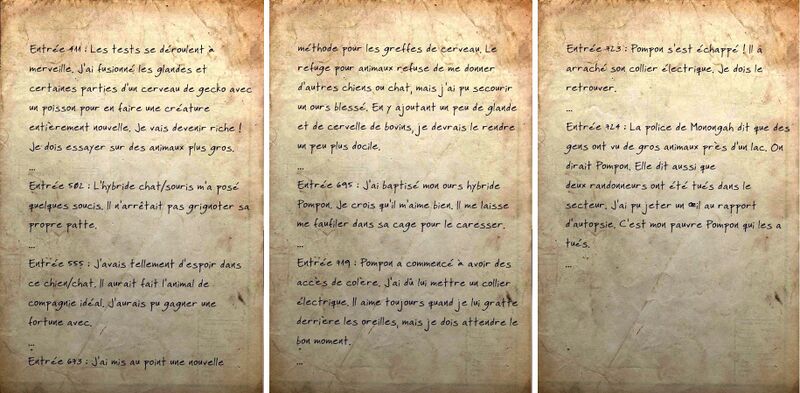 Entrée 411 : Les tests se déroulent à
merveille. J'ai fusionné les glandes et
certaines parties d'un cerveau de gecko avec
un poisson pour en faire une créature
entièrement nouvelle. Je vais devenir riche !
Je dois essayer sur des animaux plus gros.
...
Entrée 502 : L'hybride chat/souris m'a posé
quelques soucis. Il n'arrêtait pas grignoter sa
propre patte.
...
Entrée 555 : J'avais tellement d'espoir dans
ce chien/chat. Il aurait fait l'animal de
compagnie idéal. J'aurais pu gagner une
fortune avec.
...
Entrée 673 : J'ai mis au point une nouvelle
méthode pour les greffes de cerveau. Le
refuge pour animaux refuse de me donner
d'autres chiens ou chat, mais j'ai pu secourir
un ours blessé. En y ajoutant un peu de glande
et de cervelle de bovins, je devrais le rendre
un peu plus docile.
...
Entrée 695 : J'ai baptisé mon ours hybride
Pompon. Je crois qu'il m'aime bien. Il me laisse
me faufiler dans sa cage pour le caresser.
...
Entrée 719 : Pompon a commencé à avoir des
accès de colère. J'ai dû lui mettre un collier
électrique. Il aime toujours quand je lui gratte
derrière les oreilles, mais je dois attendre le
bon moment.
...
Entrée 723 : Pompon s'est échappé ! Il a
arraché son collier électrique. Je dois le
retrouver.
...
Entrée 724 : La police de Monongah dit que des
gens ont vu de gros animaux près d'un lac. On
dirait Pompon. Elle dit aussi que
deux randonneurs ont été tués dans le
secteur. J'ai pu jeter un œil au rapport
d'autopsie. C'est mon pauvre Pompon qui les a
tués.
...